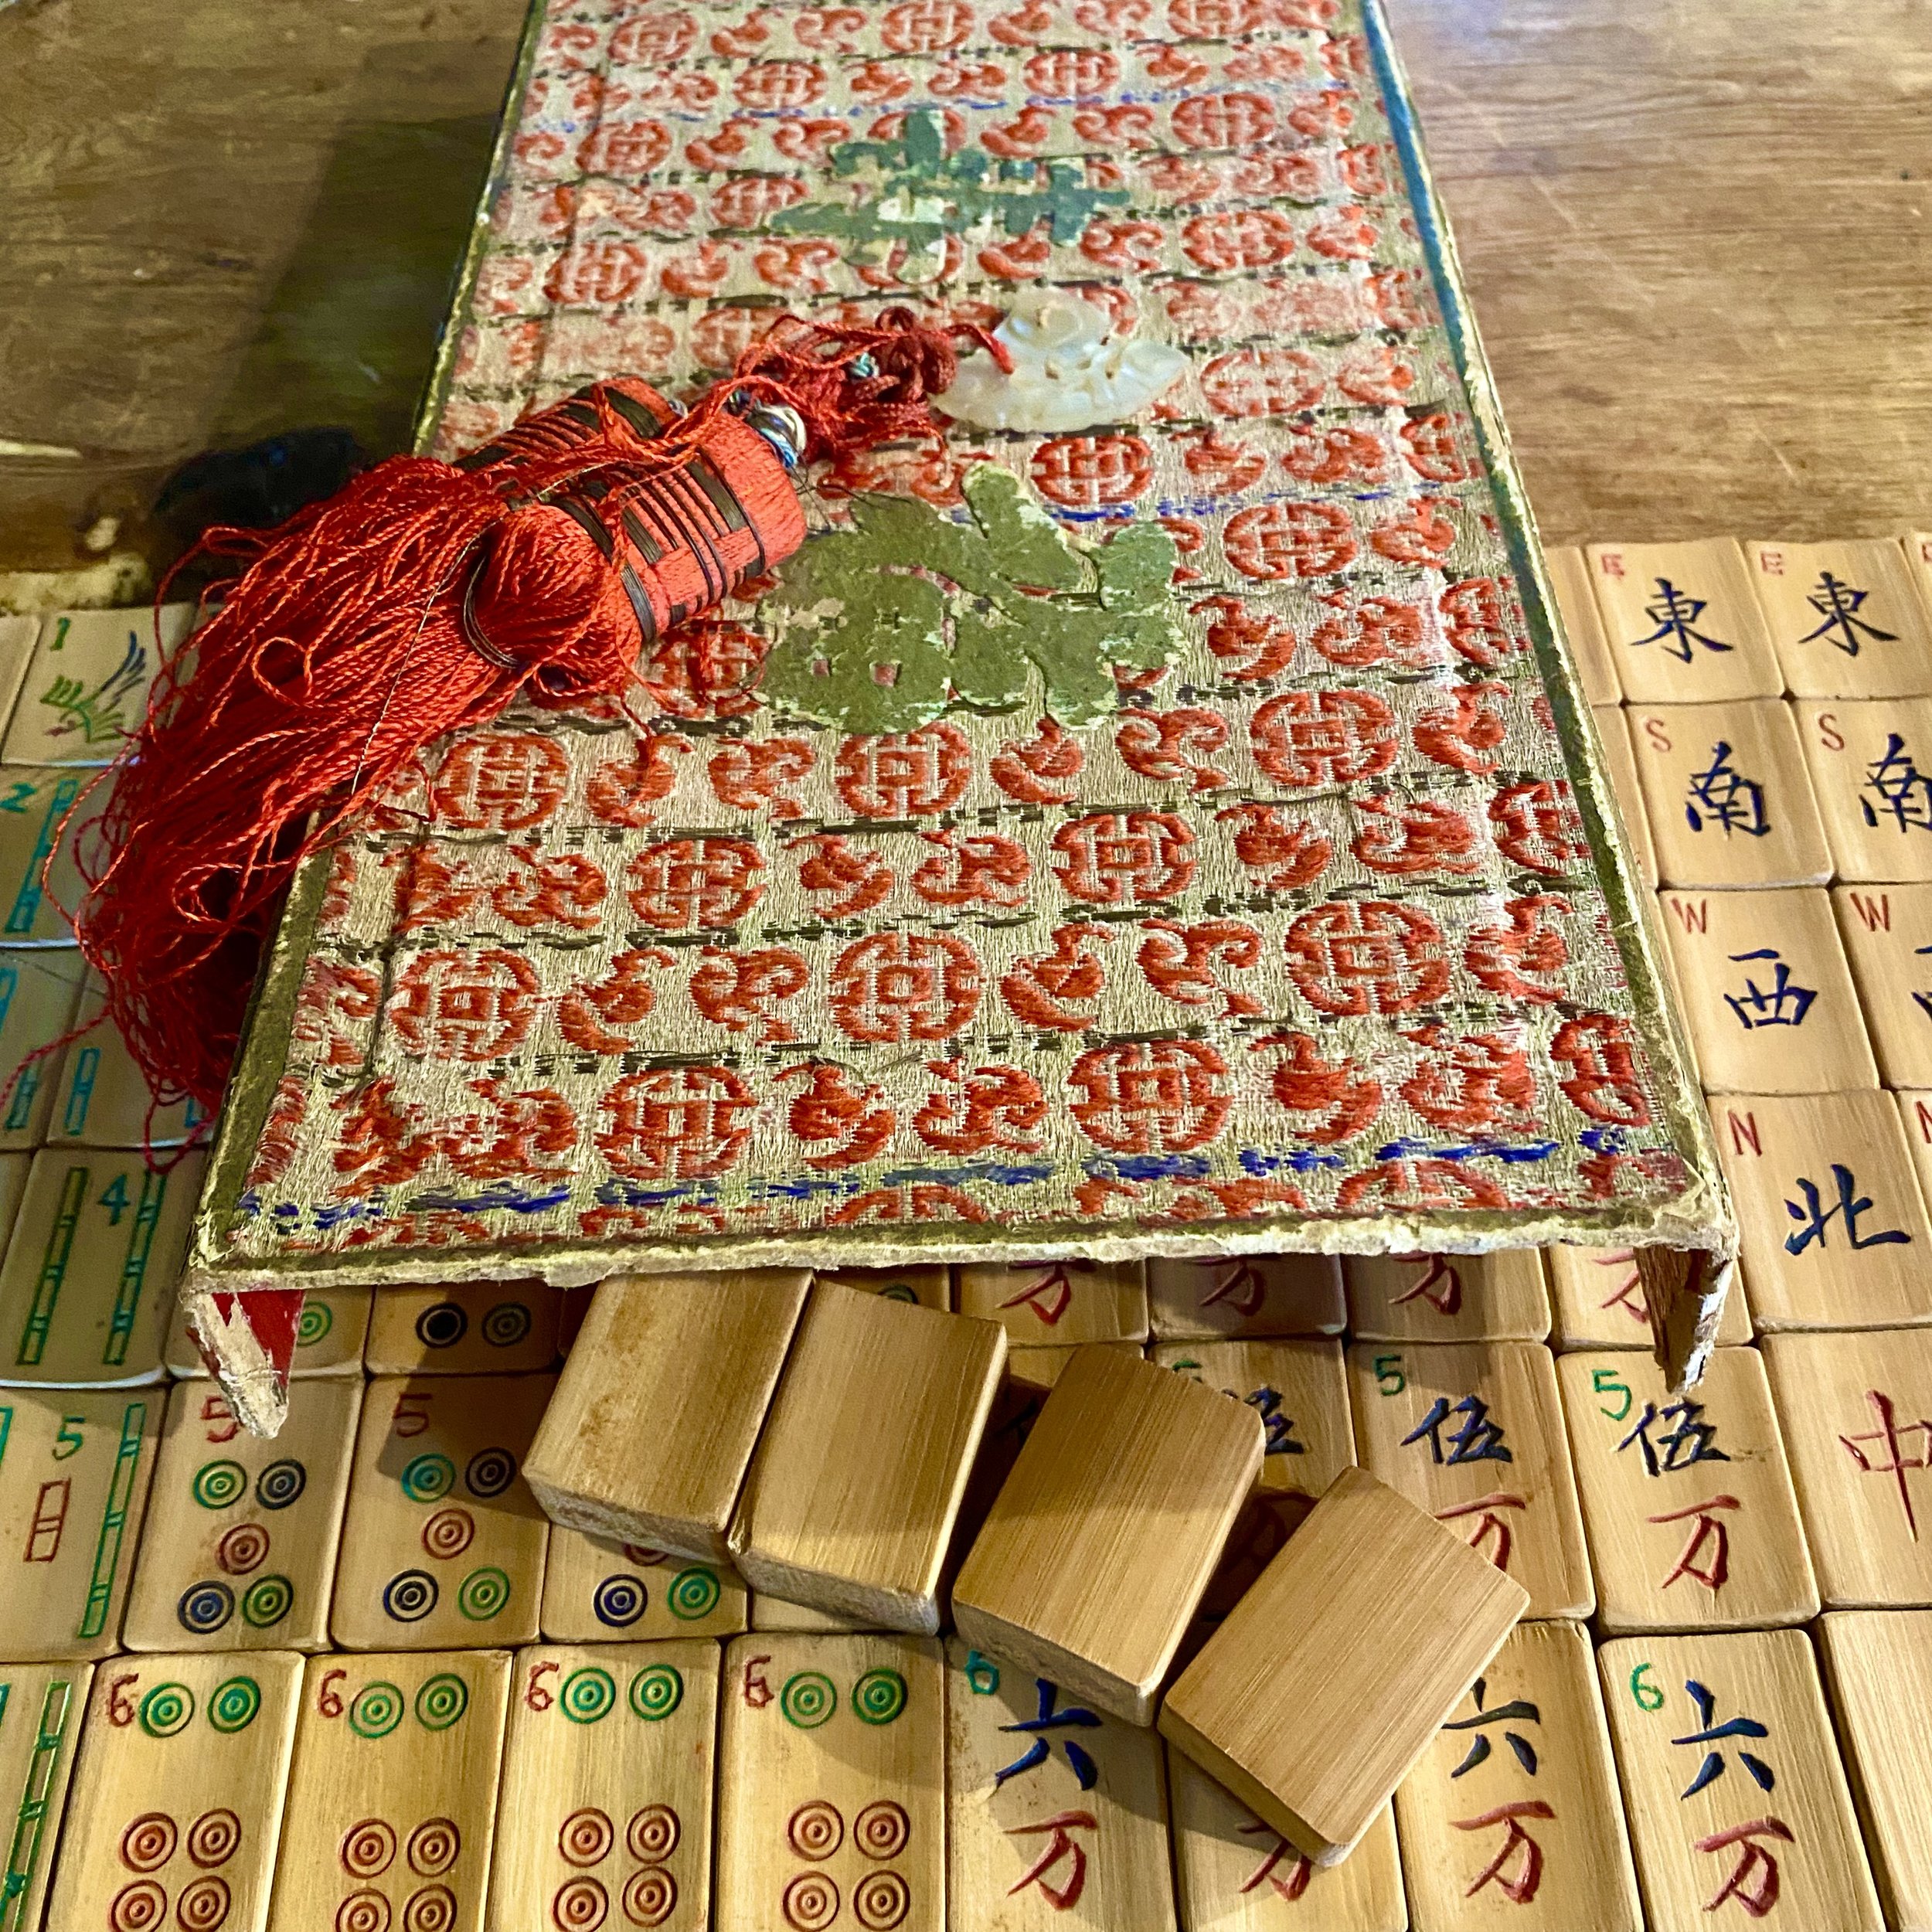 E 東 E 東
1
S 南 S 南
2
W 西 W
N 北 N
4
万 万 万 万
5 5 5 5 伍 万 5 伍 万 中
6 6 6 6 6 六 万 六 万 6 六 万